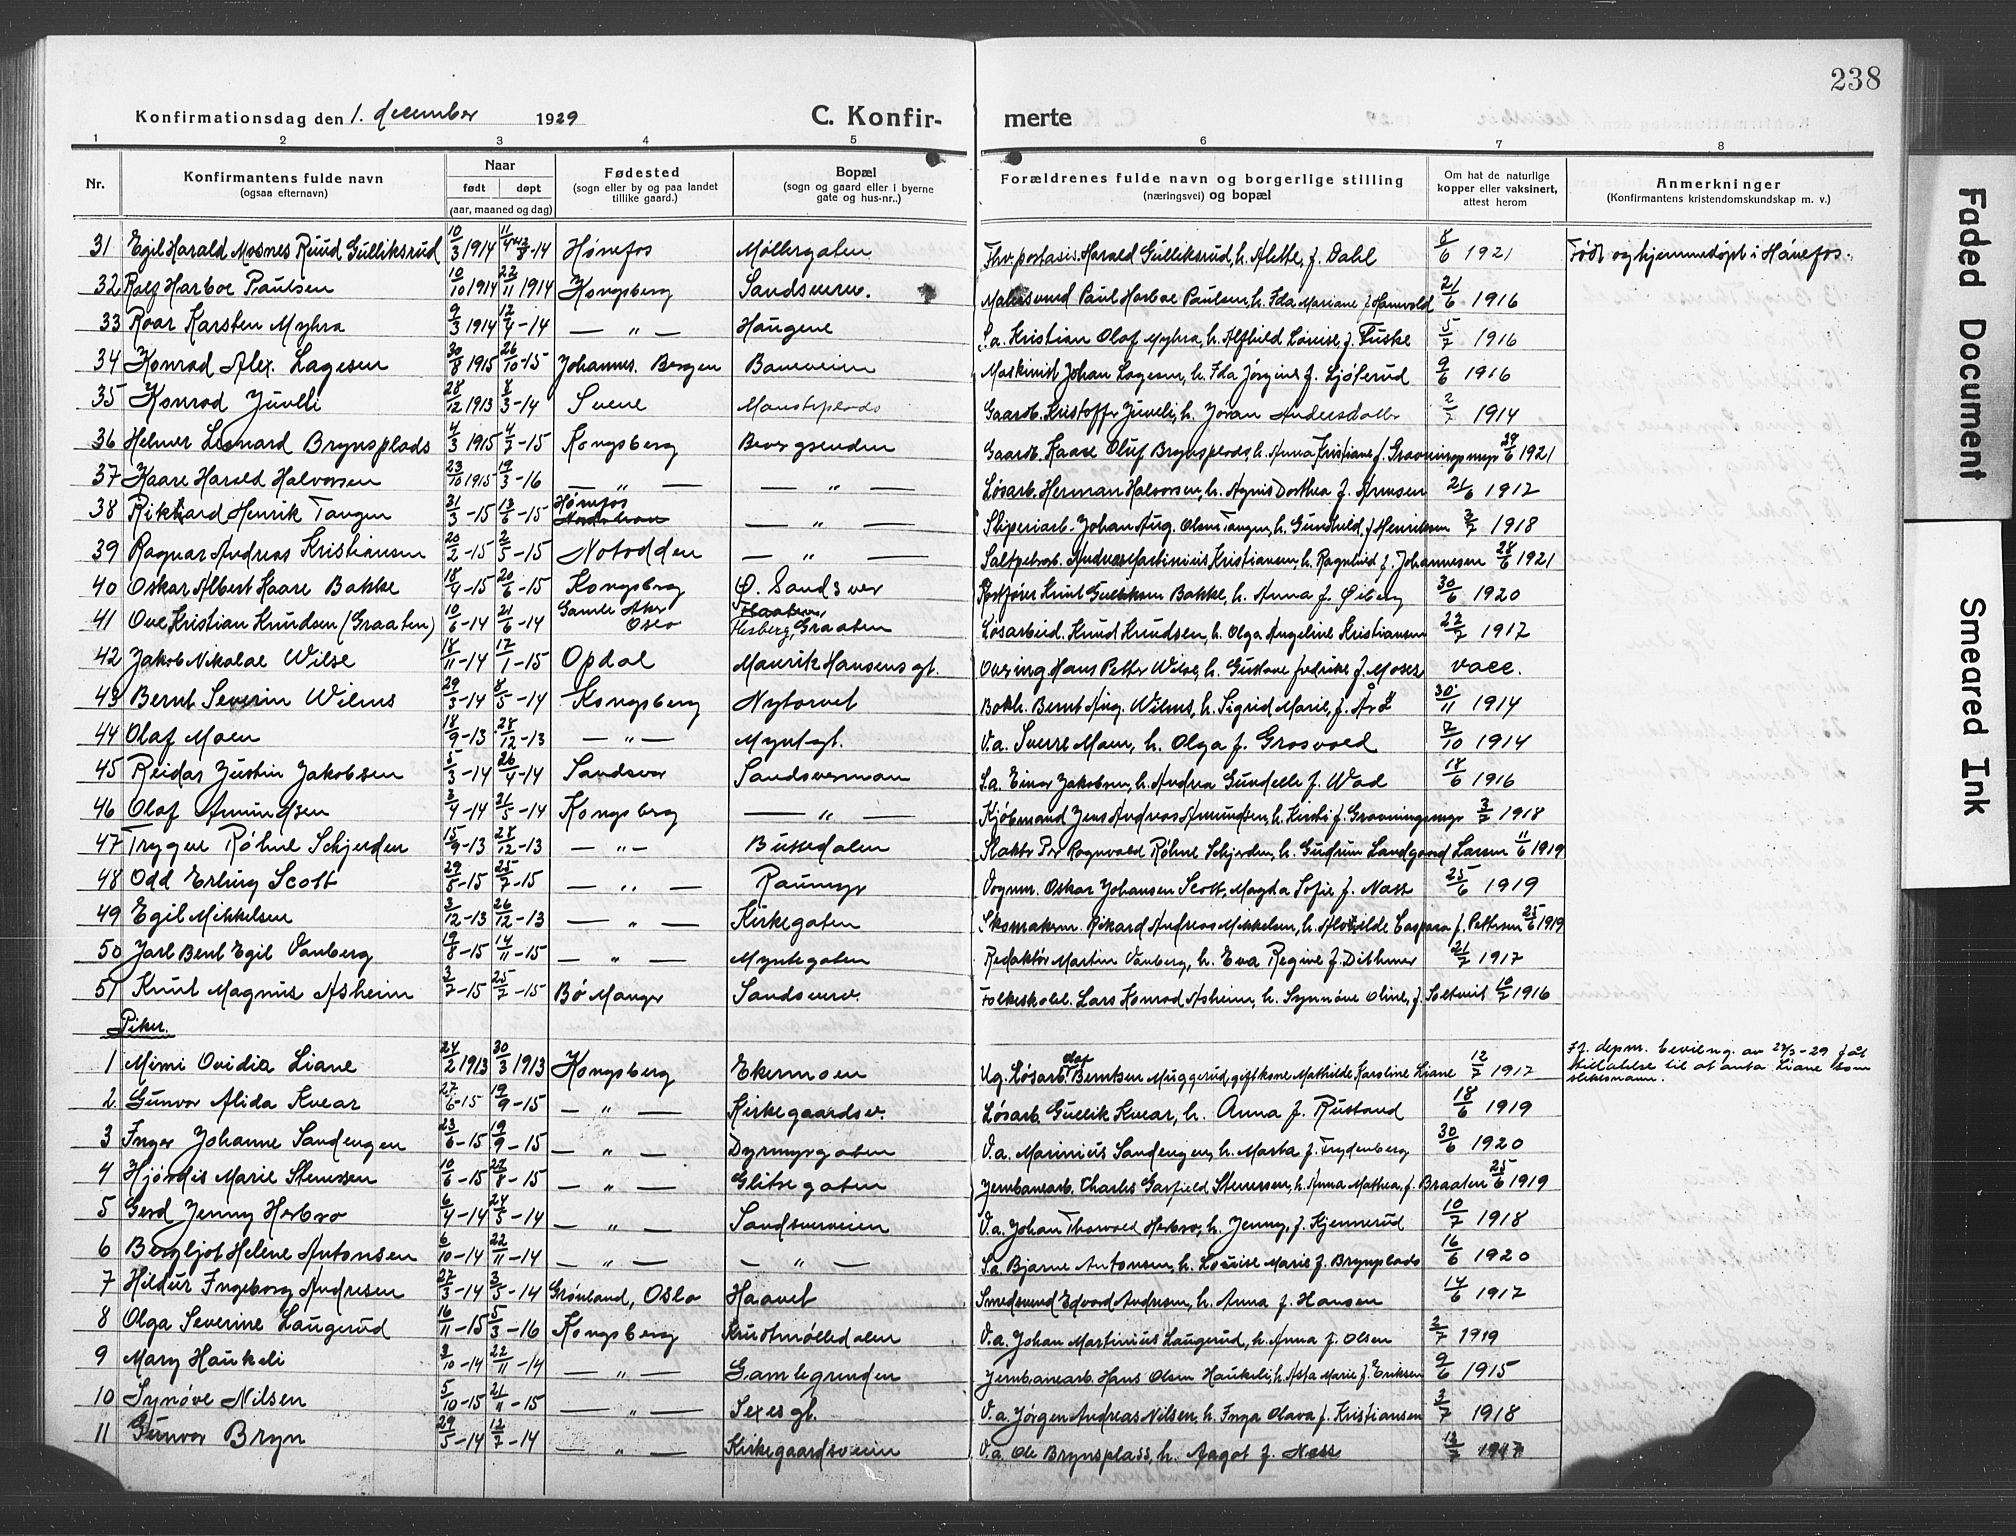 238
Konfirmationsdag den 1. december 1929
C. Konfirmerte
1 2 3 4 5 6 7 8
Nr.
Konfirmantens fulde navn
(ogsaa efternavn)
Naar
født døpt
(aar, maaned og dag)
Fødested
(sogn eller by og paa landet
tillike gaard.)
Bopæl
(sogn og gaard eller i byerne
gate og hus-nr..)
Forældrenes fulde navn og borgerlige stilling
(næringsvei) og bopæl
Om hat de naturlige
kopper eller vaksinert,
attest herom
Anmerkninger
(Konfirmantens kristendomskundskap m. v.)
31 Egil Harald Mosnes Ruud Gulliksrud 10/3 1914 Hønefos Møllergaten Harald Gulliksrud, h. Alette, f. Dahl 8/6 1921 Født og hjemmedøpt i Hønefos.
32 Rolf Harboe Paulsen 10/10 1914 22/11 1914 Kongsberg Sandsverv. Malersvend Paul Harboe Paulsen, h. Ida Mariane f. Hamvold 21/6 1916
33 Roar Karsten Myhra 9/3 1914 12/4-14 — " — Haugene S.a. Kristian Olaf Myhra, h. Alfhild Lovise, f. Tuske 5/7 1916
34 Konrad Alex. Lagesen 30/8 1915 26/10-15 Johannes. Bergen Baneveien Maskinist Johan Lagesen, h. Ida Jørgine f. Ljøterud 9/6 1916
35 Konrad Juveli 28/12 1913 8/3-14 Svene Gaardb. Kristoffer Juveli, h. Jøran Andersdatter 2/7 1914
36 Helmer Leonard Brynsplads 4/3 1915 4/7-15 Kongsberg Bevergrenden Gaardb. Kaare Oluf Brynsplads, h. Anna Kristiane f. Gravningsmyr 29/6 1921
37 Kaare Harald Halvorsen 23/10 1915 19/3-16 — " — — " — Løsarb. Herman Halvorsen, h. Agnis Dorthea f. Arnesen 21/6 1917
38 Rikhard Henrik Tangen 31/3-15 13/6-15 Hønefos — " — Sliperiarb. Johan Aug. Olsen Tangen, h. Gunhild, f. Henriksen 3/7 1918
39 Ragnar Andreas Kristiansen 20/2-15 2/5-15 Notodden — " — Salpeterarb. Andreas Martinius Kristiansen, h. Ragnhild f. Johannesen 28/6 1921
40 Oskar Albert Kaare Bakke 18/4-15 20/6-15 Kongsberg Ø. Sandsver Rotfører Knut Gulliksen Bakke, h. Anna f. Øiberg 30/6 1920
41 Ove Kristian Knudsen (Graaten) 10/6-14 21/6-14 Gamle Aker Oslo Flesberg, Graaten Løsarbeid. Knud Knudsen, h. Olga Angeline Kristiansen 22/7 1917
42 Jakob Nikolai Wilse 18/11-14 17/1-15 Opdal Maurits Hansens gt. Overing Hans Petter Wilse, h. Gustave fredrike f. Moses vacc.
43 Bernt Severin Wilms 29/3-14 8/5-14 Kongsberg Nytorvet Bokh. Bernt Aug. Wilms, h. Sigrid Marie, f. Ås 30/11 1914
44 Olaf Moen 18/9-13 28/12-13 — " — Myntgt. V.a. Sverre Moen, h. Olga f. Grosvold 7/10 1914
45 Reidar Justin Jakobsen 5/3-14 26/4-14 Sandsver Sandsvermoen S.a. Einar Jakobsen, h. Andrea Gundelle f. Wad 18/6 1916
46 Olaf Amundsen 3/4-14 21/5-14 Kongsberg — " — Kjøbmand Jens Andreas Amundsen, h. Kirsti f. Gravningsmyr 3/7 1918
47 Trygve Røhne Schjerden 15/9-13 28/12-13 — " — Bussedalen Slakter Per Ragnvald Røhne Schjerden, h. Gudrun Landgaard Larsen 11/6 1919
48 Odd Erling Scott 29/5-15 25/7-15 — " — Raumyr Vognm. Oskar Johansen Scott, Magda Sofie f. Næss 25/6 1919
49 Egil Mikkelsen 3/12-13 26/12-13 — " — Kirkegaten Skomakerm. Rikard Andreas Mikkelsen, h. Alvhilde Caspara f. Pettersen 25/6 1919
50 Jarl Bent Egil Vanberg 19/8-15 14/11-15 — " — Myntegaten Redaktør Martin Vanberg, h. Eva Regine f. Dithmer 21/7 1917
51 Knut Magnus Asheim 3/7-15 25/7-15 Bø Manger Sandsverv. Folkeskolel. Lars Konrad Asheim, h. Synnøve Oline, f. Soltveit 10/7 1916
Piker.
1 Mimi Ovidia Liane 24/2 1913 30/3 1913 Kongsberg Ekermoen Ug. Løsarb. Olaf Berntsen Muggerud, gift kone Mathilde Karoline Liane 12/7 1917 Fj. depm. beviling av 27/3-29 fåt tillatelse til at anta Liane som slektsnavn.
2 Gunvor Alida Kvear 27/6-15 19/9-15 — " — Kirkegaardsv. Løsarb. Gullik Kvear, h. Anna f. Rustand 18/6 1919
3 Inger Johanne Sandengen 23/6-15 19/9-15 — " — Dyrmyrgaten V.a. Marinius Sandengen, h. Marta f. Frydenberg 30/6 1920
4 Hjørdis Marie Stenersen 10/6-15 27/8-15 — " — Glitregaten Jernbanearb. Charles Garfield Stenersen, h. Anna Mathea, f. Braaten 25/6 1919
5 Gerd Jenny Herbro 6/4-14 24/5-14 — " — Sandsverveien V.a. Johan Thorvald Herbro, h. Jenny, f. Kjennerud 10/7 1918
6 Bergljot Helene Antonsen 6/10-14 22/11-14 — " — — " — S.a. Bjarne Antonsen, h. Louise Marie f. Brynsplads 16/6 1920
7 Hildur Ingeborg Andresen 27/3-14 3/5-14 Grønland, Oslo Haavet Smedsvend Edvard Andresen, h. Anna f. Hansen 14/6 1917
8 Olga Severine Laugerud 16/11-15 5/3-16 Kongsberg Krutmølledalen V.a. Johan Martinius Laugerud, h. Anna f. Olsen 2/7 1919
9 Mary Haukeli 3/10-14 22/11-14 — " — Gamlegrenden Jernbanearb. Hans Olsen Haukeli, h. Asta Marie f. Eriksen 9/6 1915
10 Synøve Nilsen 5/10-15 21/11-15 — " — Sexesgt. V.a. Jørgen Andreas Nilsen, h. Inga Olava f. Kristiansen 3/7 1918
11 Gunvor Bryn 29/5-14 12/7-14 — " — Kirkegaardsveien V.a. Ole Brynsplass, h. Aagot f. Næss 13/7 1917
Faded Document
Smeared Ink